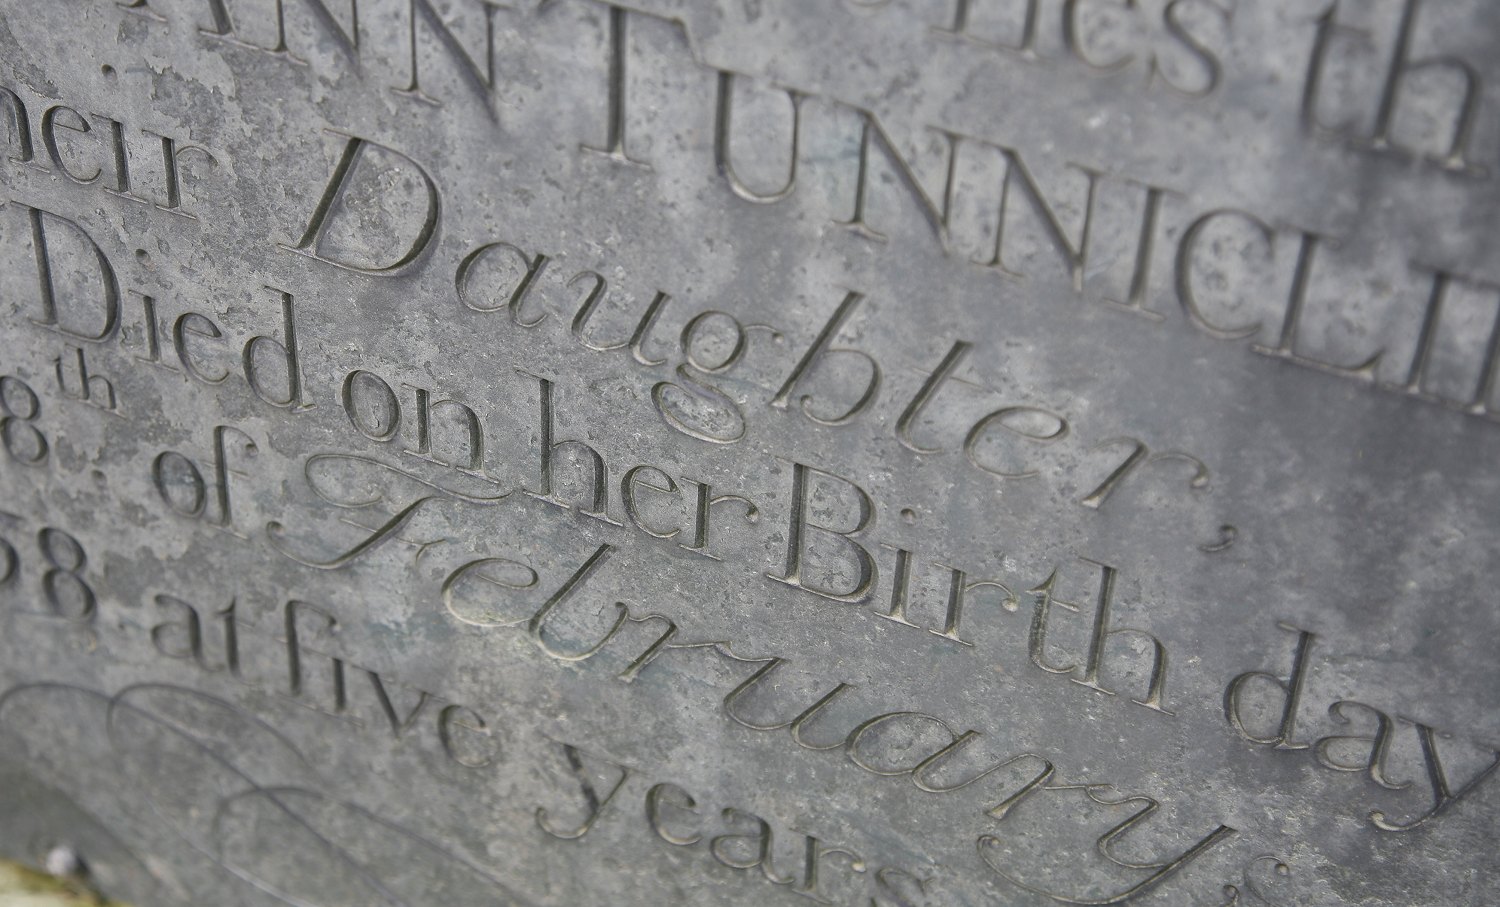 lies th
ANN TUNNICLI
heir Daughter,
Died on her Birth day
8th of February,
58 at five years